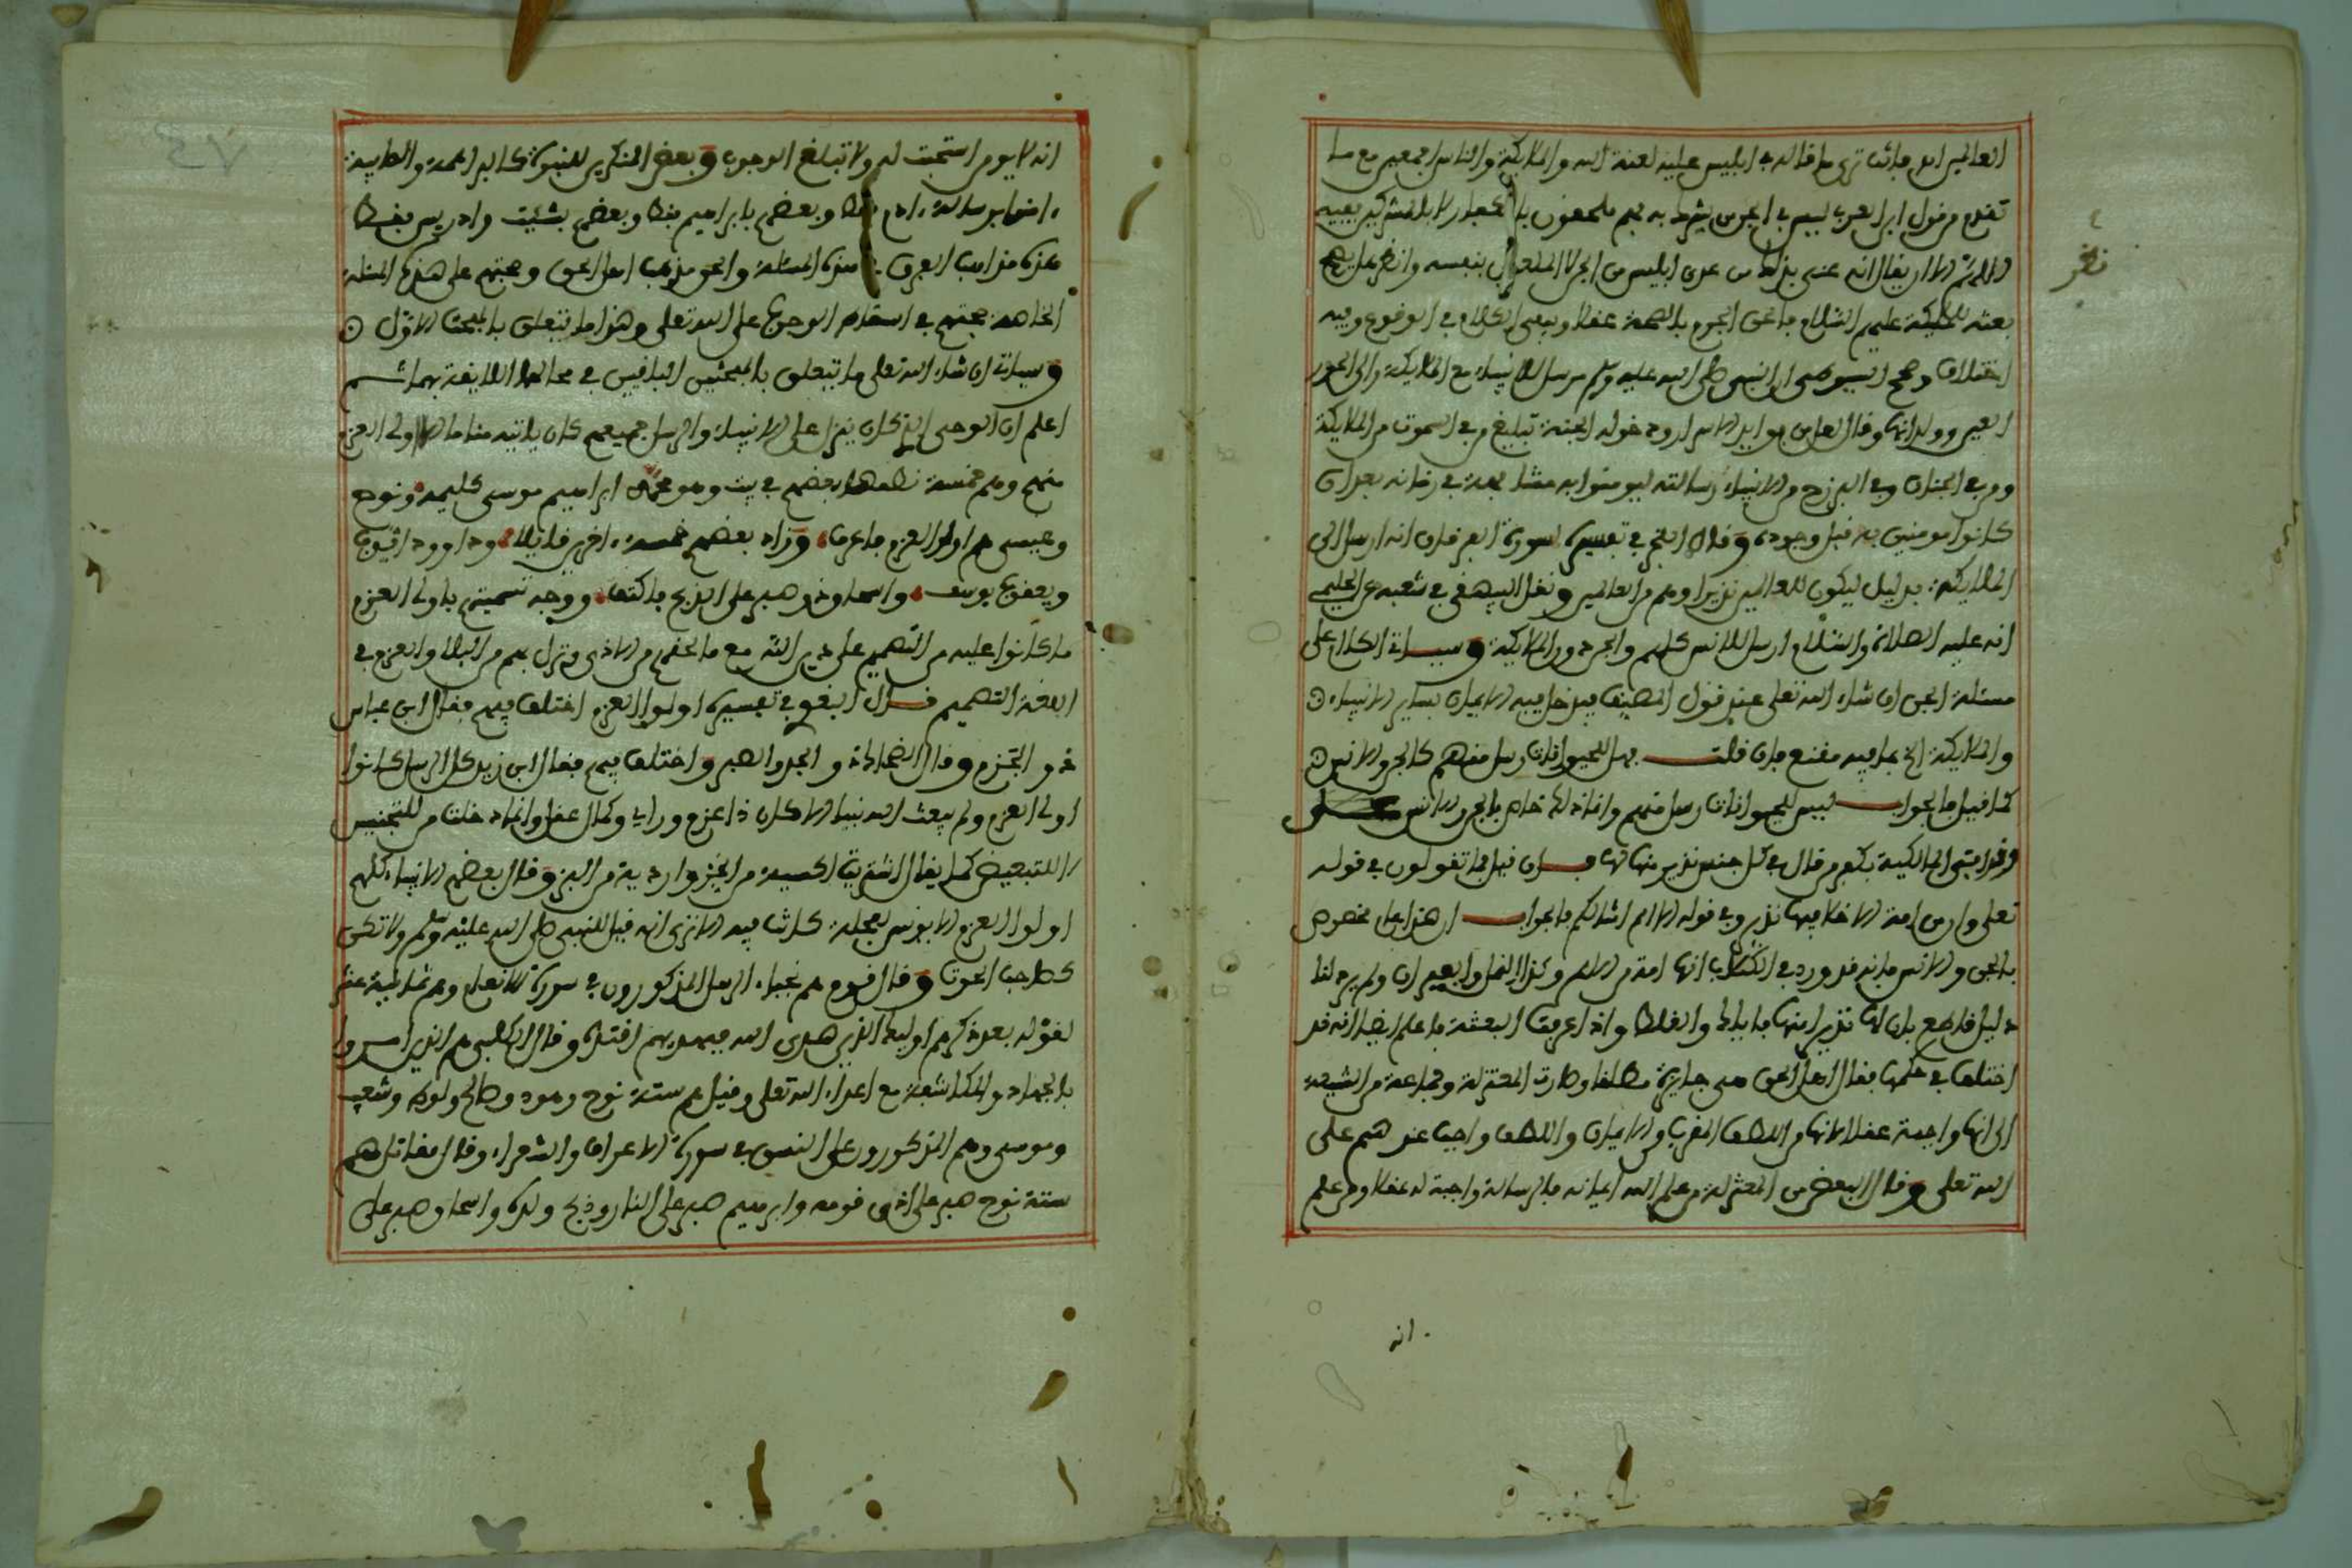 تقدم من قول ابن العربي ليس في الجن من يشرك به فهم ملحقون بالكفار لا بالمشركين ففيه
بعثه للملائكة عليهم السلام فالحق الجزم بالصحة عقلا ويبقى الكلام في الوقوع وفيه
اختلاف وصحح السيوطي أن النبي صلى الله عليه وسلم مرسل للأنبياء مع الملائكة وإلى الحور
العين وولدانها وقال
ومن في الجنان وفي البرزخ من الأنبياء رسالته ليومنوا به
كانوا مومنين به قبل وجوده وقال الفخر في تفسير سورة الفرقان انه ارسل الى
الملايكة بدليل ليكون للعالمين نذيرا وهم من العالمين ونقل البيهقي في شعبه عن الحليمي
انه عليه الصلاة والسلام ارسل للانس كلهم والجن دون الملايكة وسياتي الكلام على
مسئلة الجن ان شاء الله تعلى عند قول المصنف
والملايكة الخ بما فيه مقنع فان قلت هل للحيوانات رسل منهم كالجن والانس
كما قيل فالجواب ليس للحيوانات رسل منهم وانما ذلك خاص بالجن والانس
وقد افتى المالكية بكفر من قال في كل جنس نذير منها لها فان قيل فما تقولون في قوله
تعلى وان من امة الا خلا فيها نذير وفي قوله الا امم امثالكم فالجواب ان هذا عام مخصوص
بالجن والانس فانه قد ورد في الكتاب انها امة من الامم وكذا النمل والبعير ان ولم يرد لنا
دليل قاطع بان لها نذيرا منها فاياك والغلط واذا عرفت البعثة فاعلم ايضا انه قد
اختلف في حكمها فقال اهل الحق هي جايزة مطلقا وصارت المعتزلة وجماعة من الشيعة
الى انها واجبة عقلا لانها من اللطف المقرب من الايمان واللطف واجب عندهم على
الله تعلى وقال البعض من المعتزلة من علم الله ايمانه فالرسالة واجبة له عقلا ومن علم
انه
انه لا يومن استحبت له ولا تبلغ الوجوب وبعض المنكرين للنبوة كالبراهمة والصابية
امنوا برسالة ادم فقط وبعضهم بابراهيم فقط وبعضهم بشيث وادريس فقط
هذه مذاهب الفرق في هذه المسئلة والحق مذهب اهل الحق وحجتهم على هذه المسئلة
الخاصة حجتهم في اسقاط الوجوب على الله تعلى وهذا ما يتعلق بالمبحث الاول
وسياتي ان شاء الله تعلى ما يتعلق بالمبحثين الباقيين في محالها اللايقة بهما ثم
اعلم ان الوحي الذي كان ينزل على الانبياء والرسل جميعهم كان ياتيه مناما الا اولي العزم
منهم وهم خمسة نظمها بعضهم في بيت وهو محمد ابراهيم موسى كليمه ونوح
وعيسى هم اولوا العزم فاعرف وزاد بعضهم خمسة اخرى قايلا وداوود ايوب
ويعقوب يوسف واسحاق ذو صبر على الذبح فاكتف ووجه تسميتهم باولي العزم
ما كانوا عليه من التصميم على دين الله مع ما لحقهم من الاذى ونزل بهم من البلاء والعزم في
اللغة التصميم قال البغوي في تفسيره اولوا العزم اختلف فيهم فقال ابن عباس
ذو الحزم وقال الضحاك ذو الجد والصبر واختلف فيهم فقال ابن زيد كل الرسل كانوا
اولي العزم ولم يبعث الله نبيا الا كان ذا عزم وراي وكمال عقل وانما دخلت من للتجنيس
لا للتبعيض كما يقال اشتريت اكسية من الخز واردية من البز وقال بعضهم الانبياء كلهم
اولوا العزم الا يونس لعجلة كانت فيه الا ترى انه قيل للنبي صلى الله عليه وسلم ولا تكن
كصاحب الحوت وقال قوم هم نجباء الرسل المذكورون في سورة الانعام وهم ثمانية عشر
لقوله بعد ذكرهم اوليك الذين هدى الله فبهديهم اقتده وقال الكلبي هم الذين امروا
بالجهاد والمكاشفة مع اعداء الله تعلى وقيل هم ستة نوح وهود وصالح ولوط وشعيب
وموسى وهم المذكورون على النسق في سورة الاعراف والشعراء وقال مقاتل هم
ستة نوح صبر على اذى قومه وابرهيم صبر على النار وذبح ولده واسحاق صبر على